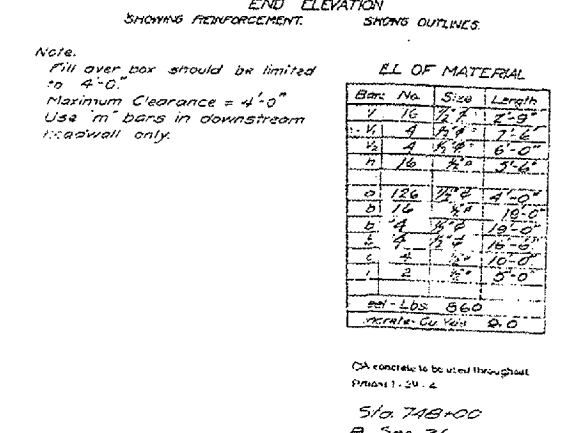 END ELEVATION
SHOWING REINFORCEMENT. SHOWS OUTLINES.
Note.
Fill over box should be limited
to 4'-0".
Maximum Clearance = 4'-0"
Use "m" bars in downstream
headwall only.
LL OF MATERIAL
Bars No. Size Length
V 16 1/2"φ 2'-9"
V1 4 1/2"φ 7'-6"
V2 4 1/2"φ 6'-0"
h 16 1/2"φ 5'-6"
a 126 1/2"φ 4'-0"
b 16 1/2"φ 19'-0"
b 4 1/2"φ 19'-0"
4 1/2"φ 16'-0"
4 1/2"φ 10'-0"
2 1/2"φ 5'-0"
eel-Lbs 860
ncrete-Cu Yds 9.0
concrete to be used throughout
Sta. 748+00